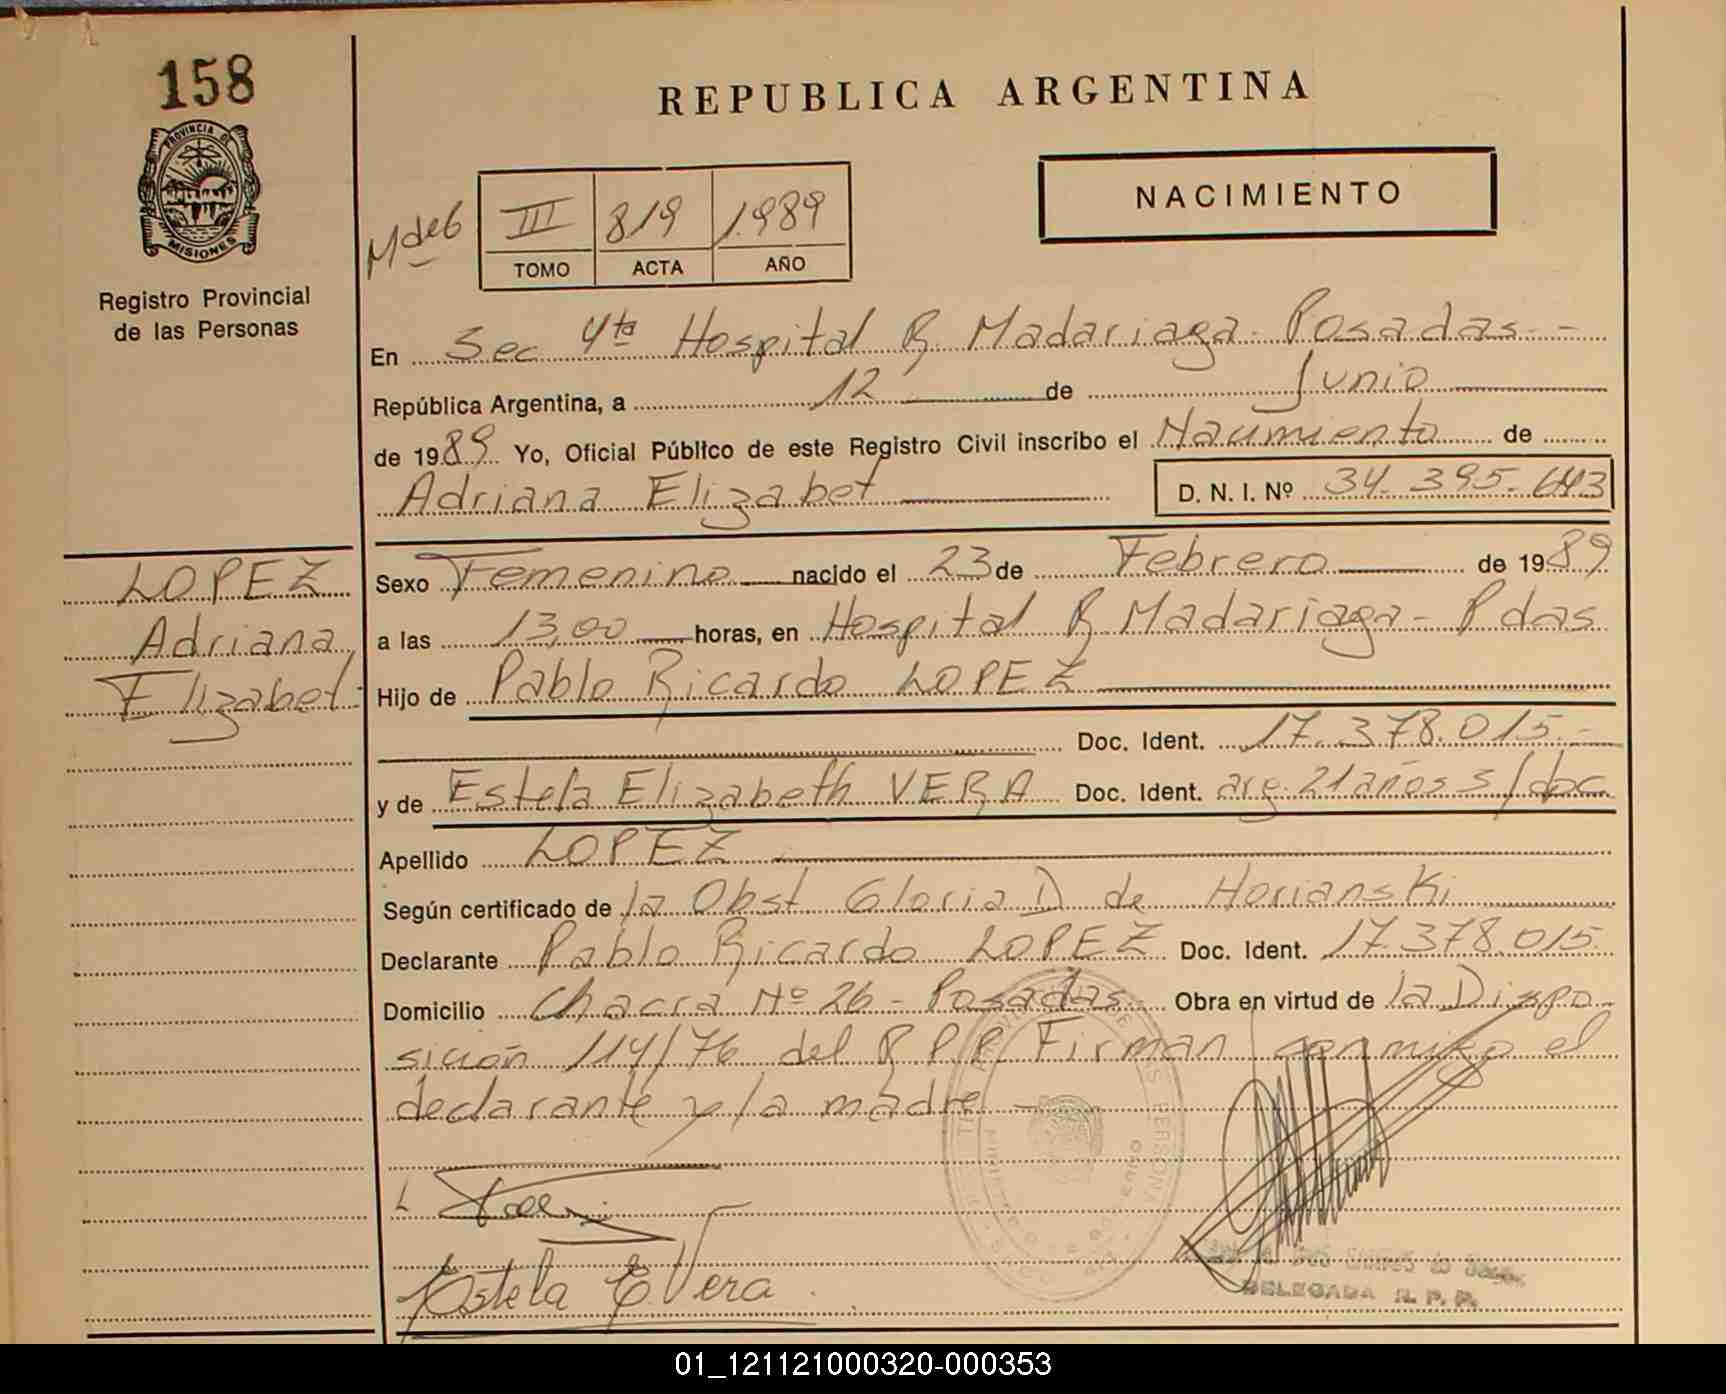 158
PROVINCIA DE
MISIONES
Registro Provincial
de las Personas
REPUBLICA ARGENTINA
NACIMIENTO
III 819 1.989
TOMO ACTA AÑO
En Sec 4ta Hospital R. Madariaga - Posadas. -
República Argentina, a 12 de Junio
de 1989 Yo, Oficial Público de este Registro Civil inscribo el Nacimiento de
Adriana Elizabet D. N. I. Nº 34.395.643
LOPEZ
Adriana
Elizabet
Sexo Femenino nacido el 23 de Febrero de 1989
a las 13,00 horas, en Hospital R Madariaga - Pdas
Hijo de Pablo Ricardo LOPEZ
Doc. Ident. 17.378.015.-
y de Estela Elizabeth VERA Doc. Ident. arg. 21 años s/doc
Apellido LOPEZ
Según certificado de la Obst Gloria D de Horianski
Declarante Pablo Ricardo LOPEZ Doc. Ident. 17.378.015
Domicilio Chacra Nº 26 - Posadas Obra en virtud de la Dispo
sición 114/76 del R P P. Firman conmigo el
declarante y la madre -
Estela E Vera
DELEGADA R. P. P.
01_121121000320-000353